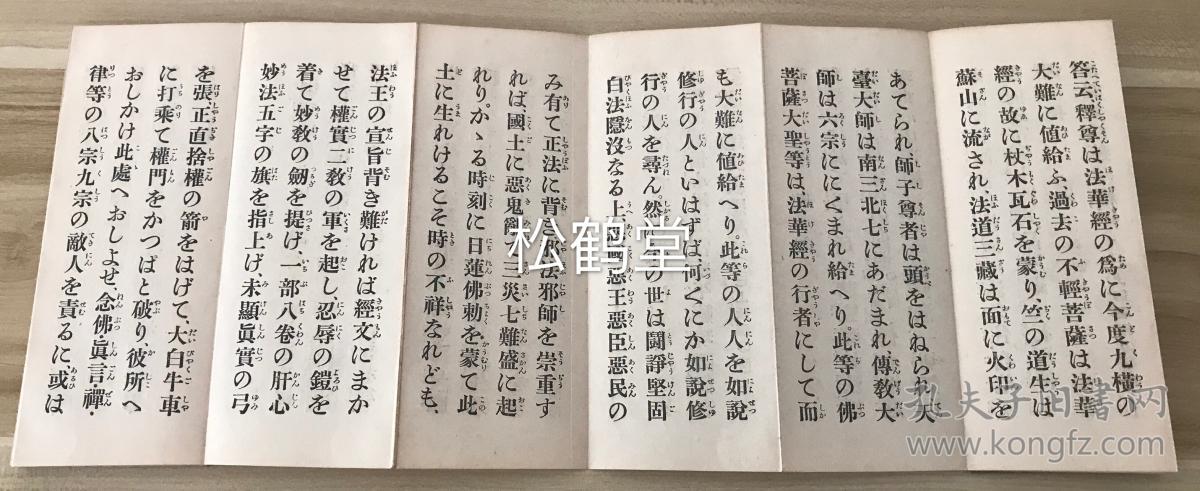 答云釋尊は法華經の爲に今度九橫の
大難に値給ふ過去の不輕菩薩は法華
經の故に杖木瓦石を蒙り、竺の道生は
蘇山に流され、法道三藏は面に火印を
あてられ師子尊者は頭をはねられ天
臺大師は南三北七にあだまれ傳敎大
師は六宗ににくまれ給へり。此等の佛
菩薩大聖等は、法華經の行者にして而
も大難に値給へり。此等の人人を如說
修行の人といはずば、何くにか如說修
行の人を尋ん、然の世は鬪諍堅固
白法隱沒なる上惡王惡臣惡民の
み有て正法に背き邪法邪師を崇重す
れば、國土に惡鬼亂三災七難盛に起
れり。かゝる時刻に日蓮佛勅を蒙て此
土に生れけるこそ時の不祥なれども、
法王の宣旨背き難ければ經文にまか
せて權實二敎の軍を起し忍辱の鎧を
着て妙敎の劒を提げ、一部八卷の肝心
妙法五字の旗を指上げ、未顯眞實の弓
を張正直捨權の箭をはげて、大白牛車
に打乘て權門をかつぱと破り、彼所へ
おしかけ此處へおしよせ、念佛眞言・禪・
律等の八宗九宗の敵人を責るに或は
松鹤堂
孔夫子旧书网
www.kongfz.com